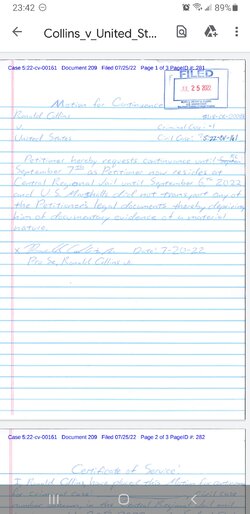 23:42
89%
Collins_v_United_St...
Case 5:22-cv-00161 Document 209 Filed 07/25/22 Page 1 of 3 PageID #: 281
FILED
JUL 25 2022
Motion for Continuance
Ronald Collins
v.
United States
Petitioner hereby requests continuance until
September 7th as Petitioner now resides at
Central Regional Jail until September 6th 2022
and U.S. Marshalls did not transport any of
the Petitioner's legal documents thereby depriving
him of documentary evidence of a material
nature.
x Date: 7-20-22
Pro Se, Ronald Collins
Case 5:22-cv-00161 Document 209 Filed 07/25/22 Page 2 of 3 PageID #: 282
Certificate of Service:
I Ronald Collins have placed this Motion for
for criminal case
number in the Central Regional Jail mail